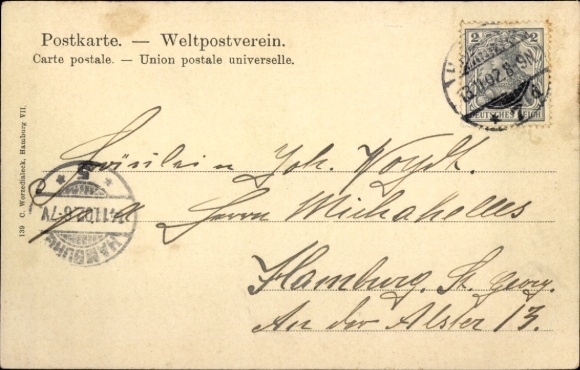 Postkarte. — Weltpostverein.
Carte postale. — Union postale universelle.
2
DEUTSCHES REICH
13.11.02.8-9N.
Fräulein Joh. Voigdt.
Herrn Michahelles
Hamburg. St. Georg.
An der Alster 13.
HAMBURG
5
.11.02.6-7V.
139 C. Worzedialeck, Hamburg VII.